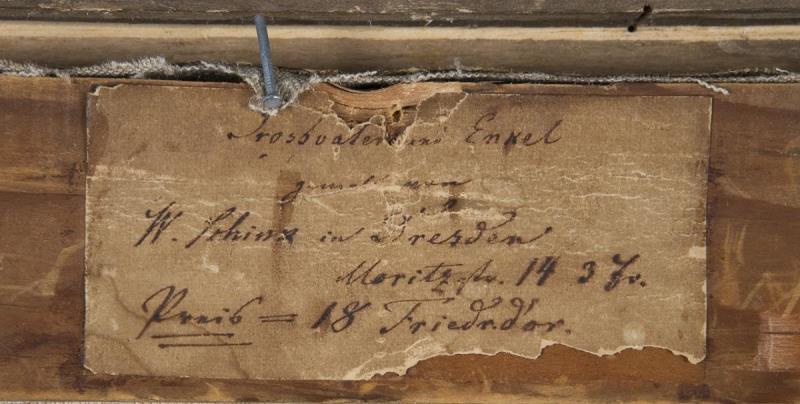 Grossvater und Enkel
gemalt von
W. Schinz in Dresden
Moritzstr. 14 3 Tr.
Preis = 18 Friedrdor.